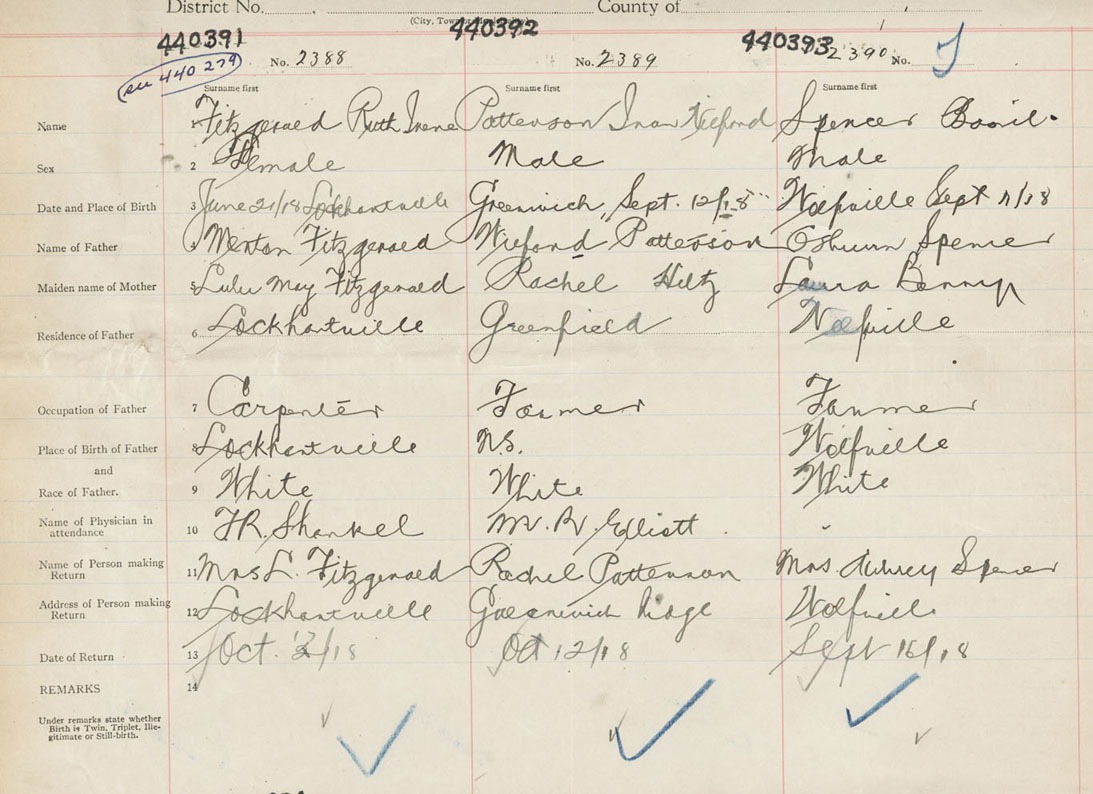 District No. County of
(City, Town or
440391 440392 440393
see 440279 No. 2388 No. 2389 2390 No.
Surname first Surname first Surname first
Name 1 Fitzgerald Ruth Irene Patterson Wilford Spencer Basil.
Sex 2 Female Male Male
Date and Place of Birth 3 June 21/18 Lockhartville Greenwich, Sept. 12/18 Wolfville Sept 11/18
Name of Father 4 Fitzgerald Wilford Patterson Spencer
Maiden name of Mother 5 Lulu May Fitzgerald Rachel Hiltz Laura
Residence of Father 6 Lockhartville Greenfield Wolfville
Occupation of Father 7 Carpenter Farmer Farmer
Place of Birth of Father 8 Lockhartville N.S. Wolfville
and
Race of Father. 9 White White White
Name of Physician in
attendance 10 F.R. Shankel M. R. Elliott
Name of Person making
Return 11 Mrs L. Fitzgerald Rachel Patterson Mrs. Aubrey Spencer
Address of Person making
Return 12 Lockhartville Greenwich Ridge Wolfville
Date of Return 13 Oct. /18 Oct 12/18 Sept /18
REMARKS 14
Under remarks state whether
Birth is Twin, Triplet, Ille-
gitimate or Still-birth.